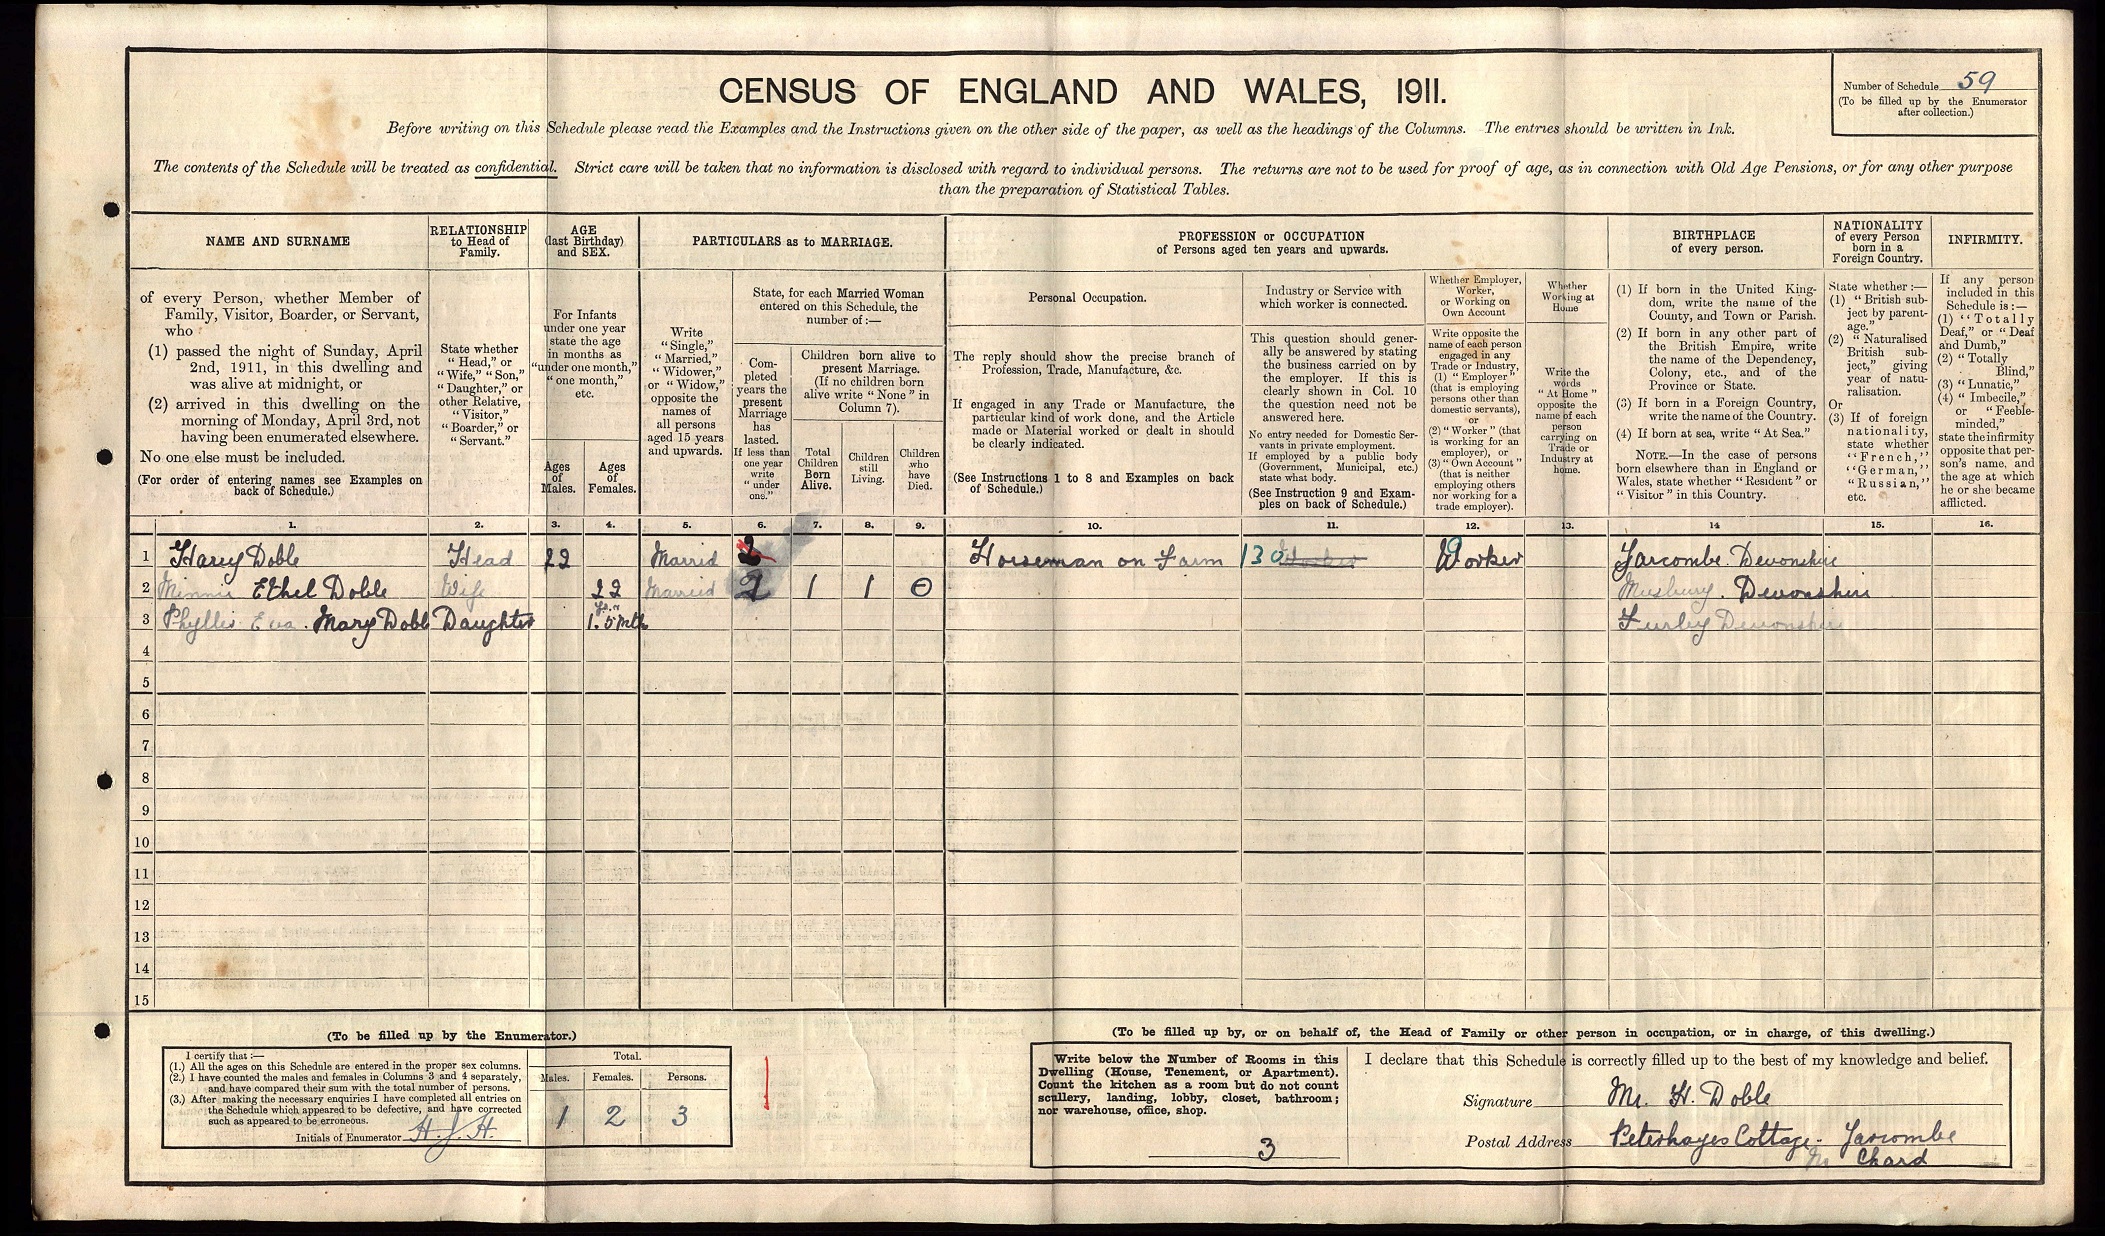 CENSUS OF ENGLAND AND WALES, 1911.
Number of Schedule 59
(To be filled up by the Enumerator
after collection.)
Before writing on this Schedule please read the Examples and the Instructions given on the other side of the paper, as well as the headings of the Columns. The entries should be written in Ink.
The contents of the Schedule will be treated as confidential. Strict care will be taken that no information is disclosed with regard to individual persons. The returns are not to be used for proof of age, as in connection with Old Age Pensions, or for any other purpose
than the preparation of Statistical Tables.
NAME AND SURNAME
of every Person, whether Member of
Family, Visitor, Boarder, or Servant,
who
(1) passed the night of Sunday, April
2nd, 1911, in this dwelling and
was alive at midnight, or
(2) arrived in this dwelling on the
morning of Monday, April 3rd, not
having been enumerated elsewhere.
No one else must be included.
(For order of entering names see Examples on
back of Schedule.)
RELATIONSHIP
to Head of
Family.
State whether
"Head," or
"Wife," "Son,"
"Daughter," or
other Relative,
"Visitor,"
"Boarder," or
"Servant."
AGE
(last Birthday)
and SEX.
For Infants
under one year
state the age
in months as
"under one month,"
"one month,"
etc.
Ages
of
Males.
Ages
of
Females.
PARTICULARS as to MARRIAGE.
Write
"Single,"
"Married,"
"Widower,"
or "Widow,"
opposite the
names of
all persons
aged 15 years
and upwards.
State, for each Married Woman
entered on this Schedule, the
number of:—
Com-
pleted
years the
present
Marriage
has
lasted.
If less than
one year
write
"under
one."
Children born alive to
present Marriage.
(If no children born
alive write "None" in
Column 7).
Total
Children
Born
Alive.
Children
still
Living.
Children
who
have
Died.
PROFESSION or OCCUPATION
of Persons aged ten years and upwards.
Personal Occupation.
The reply should show the precise branch of
Profession, Trade, Manufacture, &c.
If engaged in any Trade or Manufacture, the
particular kind of work done, and the Article
made or Material worked or dealt in should
be clearly indicated.
(See Instructions 1 to 8 and Examples on back
of Schedule.)
Industry or Service with
which worker is connected.
This question should gener-
ally be answered by stating
the business carried on by
the employer. If this is
clearly shown in Col. 10
the question need not be
answered here.
No entry needed for Domestic Ser-
vants in private employment.
If employed by a public body
(Government, Municipal, etc.)
state what body.
(See Instruction 9 and Exam-
ples on back of Schedule.)
Whether Employer,
Worker,
or Working on
Own Account
Write opposite the
name of each person
engaged in any
Trade or Industry,
(1) "Employer"
(that is employing
persons other than
domestic servants),
or
(2) "Worker" (that
is working for an
employer), or
(3) "Own Account"
(that is neither
employing others
nor working for a
trade employer).
Whether
Working at
Home
Write the
words
"At Home"
opposite the
name of each
person
carrying on
Trade or
Industry at
home.
BIRTHPLACE
of every person.
(1) If born in the United King-
dom, write the name of the
County, and Town or Parish.
(2) If born in any other part of
the British Empire, write
the name of the Dependency,
Colony, etc., and of the
Province or State.
(3) If born in a Foreign Country,
write the name of the Country.
(4) If born at sea, write "At Sea."
NOTE.—In the case of persons
born elsewhere than in England or
Wales, state whether "Resident" or
"Visitor" in this Country.
NATIONALITY
of every Person
born in a
Foreign Country.
State whether:—
(1) "British sub-
ject by parent-
age."
(2) "Naturalised
British sub-
ject," giving
year of natu-
ralisation.
Or
(3) If of foreign
nationality,
state whether
"French,"
"German,"
"Russian,"
etc.
INFIRMITY.
If any person
included in this
Schedule is:—
(1) "Totally
Deaf," or "Deaf
and Dumb,"
(2) "Totally
Blind,"
(3) "Lunatic,"
(4) "Imbecile,"
or "Feeble-
minded,"
state the infirmity
opposite that per-
son's name, and
the age at which
he or she became
afflicted.
1. 2. 3. 4. 5. 6. 7. 8. 9. 10. 11. 12. 13. 14 15. 16.
1 Harry Doble Head 22 Married 2 Horseman on Farm 130 Worker Worker Yarcombe Devonshire
2 Minnie Ethel Doble Wife 22 Married 2 1 1 0 Musbury. Devonshire
3 Phyllis Eva. Mary Doble Daughter 1. 5 mth Furley Devonshire
4
5
6
7
8
9
10
11
12
13
14
15
(To be filled up by the Enumerator.)
I certify that:—
(1.) All the ages on this Schedule are entered in the proper sex columns.
(2.) I have counted the males and females in Columns 3 and 4 separately,
and have compared their sum with the total number of persons.
(3.) After making the necessary enquiries I have completed all entries on
the Schedule which appeared to be defective, and have corrected
such as appeared to be erroneous.
Initials of Enumerator H. J. H.
Total.
Males. Females. Persons.
1 2 3
(To be filled up by, or on behalf of, the Head of Family or other person in occupation, or in charge, of this dwelling.)
Write below the Number of Rooms in this
Dwelling (House, Tenement, or Apartment).
Count the kitchen as a room but do not count
scullery, landing, lobby, closet, bathroom;
nor warehouse, office, shop.
3
I declare that this Schedule is correctly filled up to the best of my knowledge and belief.
Signature Mr. H. Doble
Postal Address Peterhayes Cottage. Yarcombe
Nr Chard